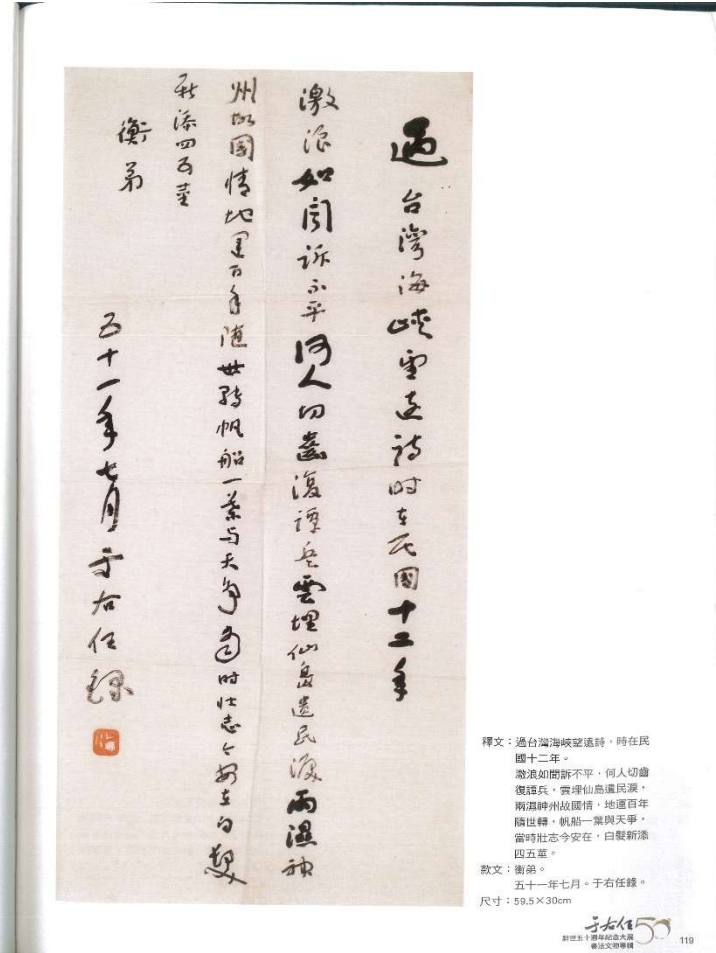 過台灣海峽望遠詩時在民國十二年
激浪如聞訴不平何人切齒復譚兵雲埋仙島遺民淚雨濕神
州故國情地運百年隨世轉帆船一葉与天爭當時壯志今安在白髮
新添四五莖
衡弟
五十一年七月于右任錄
釋文：過台灣海峽望遠詩，時在民
國十二年。
激浪如聞訴不平，何人切齒
復譚兵，雲埋仙島遺民淚，
雨濕神州故國情，地運百年
隨世轉，帆船一葉與天爭，
當時壯志今安在，白髮新添
四五莖。
款文：衡弟。
五十一年七月。于右任錄。
尺寸：59.5×30cm
于右任50
辭世五十週年紀念大展
書法文物專輯
119